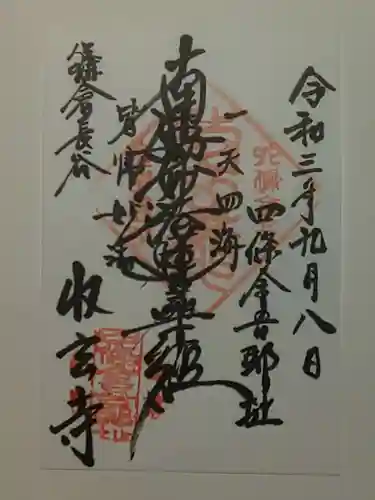 令和三年九月八日
四條金吾邸址
一天四海
南無妙法蓮華経
皆帰妙法
鎌倉長谷
收玄寺